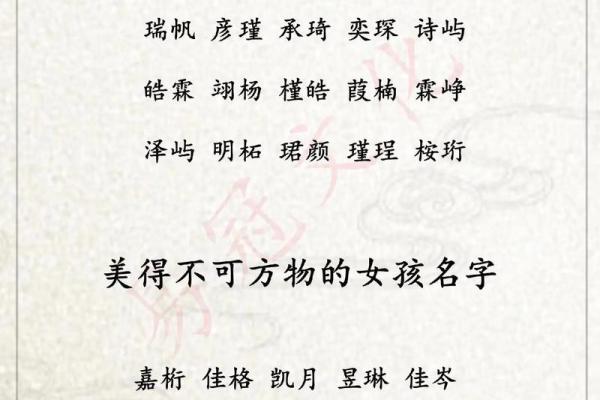 瑞帆 彦瑾 承琦 奕琛 诗屿
皓霖 翊杨 槿皓 葭楠 霖峥
泽屿 明柘 珺颜 瑾珵 桉珩
美得不可方物的女孩名字
嘉桁 佳格 凯月 昱琳 佳岑
易冠文化